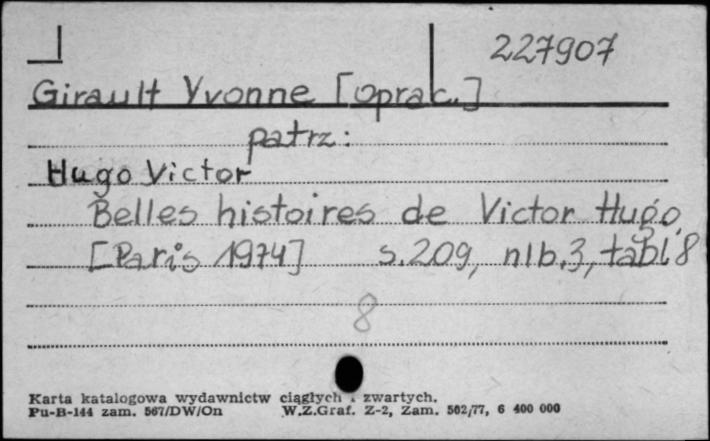 227907
Girault Yvonne [oprac.]
patrz:
Hugo Victor
Belles histoires de Victor Hugo.
[Paris 1974] s.209, nlb.3, tabl 8
8
Karta katalogowa wydawnictw ciągłych i zwartych.
Pu-B-144 zam. 567/DW/On W.Z.Graf. Z-2, Zam. 502/77, 6 400 000